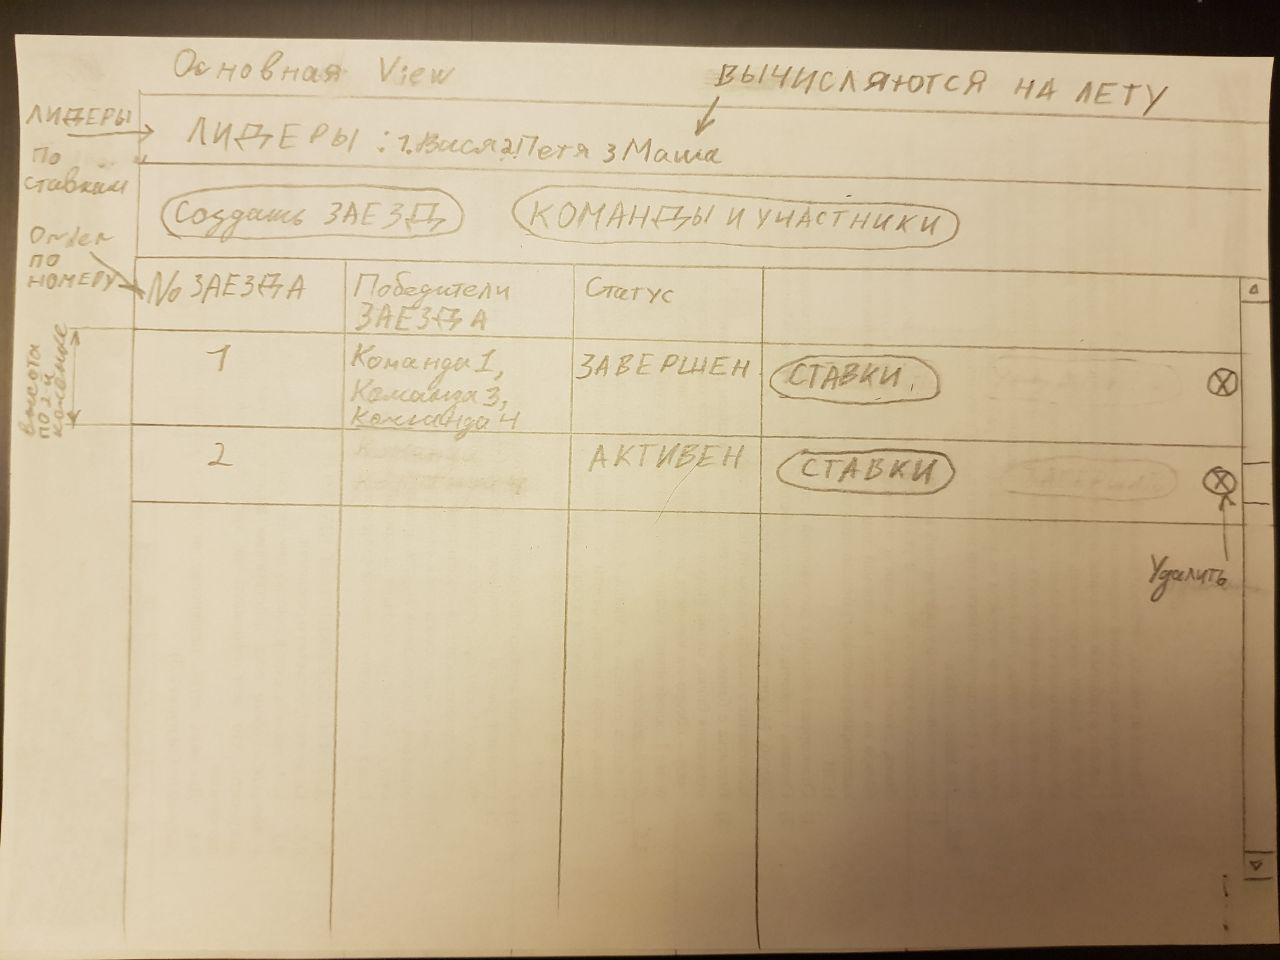 Основная View
ВЫЧИСЛЯЮТСЯ НА ЛЕТУ
ЛИДЕРЫ
по
ставкам
ЛИДЕРЫ: 1.Вася 2.Петя 3 Маша
Создать ЗАЕЗД
КОМАНДЫ И УЧАСТНИКИ
Order
по
НОМЕРУ
№ ЗАЕЗДА
Победители
ЗАЕЗДА
Статус
высота
по 2-й
колонке
1
Команда 1,
Команда 3,
Команда 4
ЗАВЕРШЕН
СТАВКИ
2
АКТИВЕН
СТАВКИ
Удалить